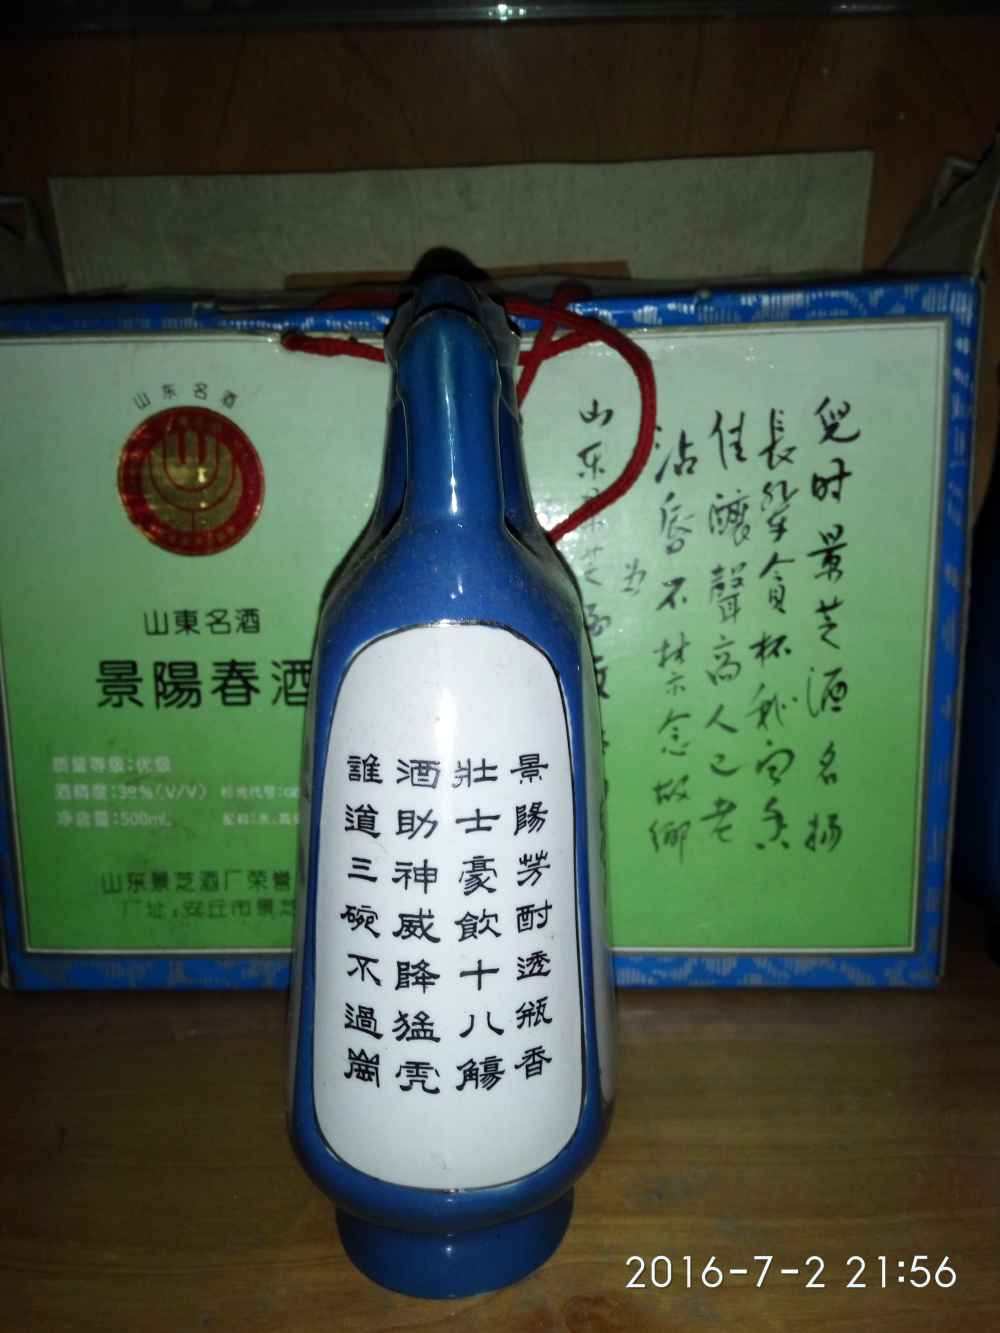 景陽芳酎透瓶香
壯士豪飲十八觴
酒助神威降猛虎
誰道三碗不過崗
山东名酒
山東名酒
景陽春酒
质量等级:优级
酒精度:39%(V/V)
净含量:500mL
山东景芝酒厂荣誉
厂址:安丘市景芝
兒时景芝酒名扬
長輩貪杯我闻香
佳釀聲高人已老
沾唇不禁念故鄉
山东景芝
2016-7-2 21:56